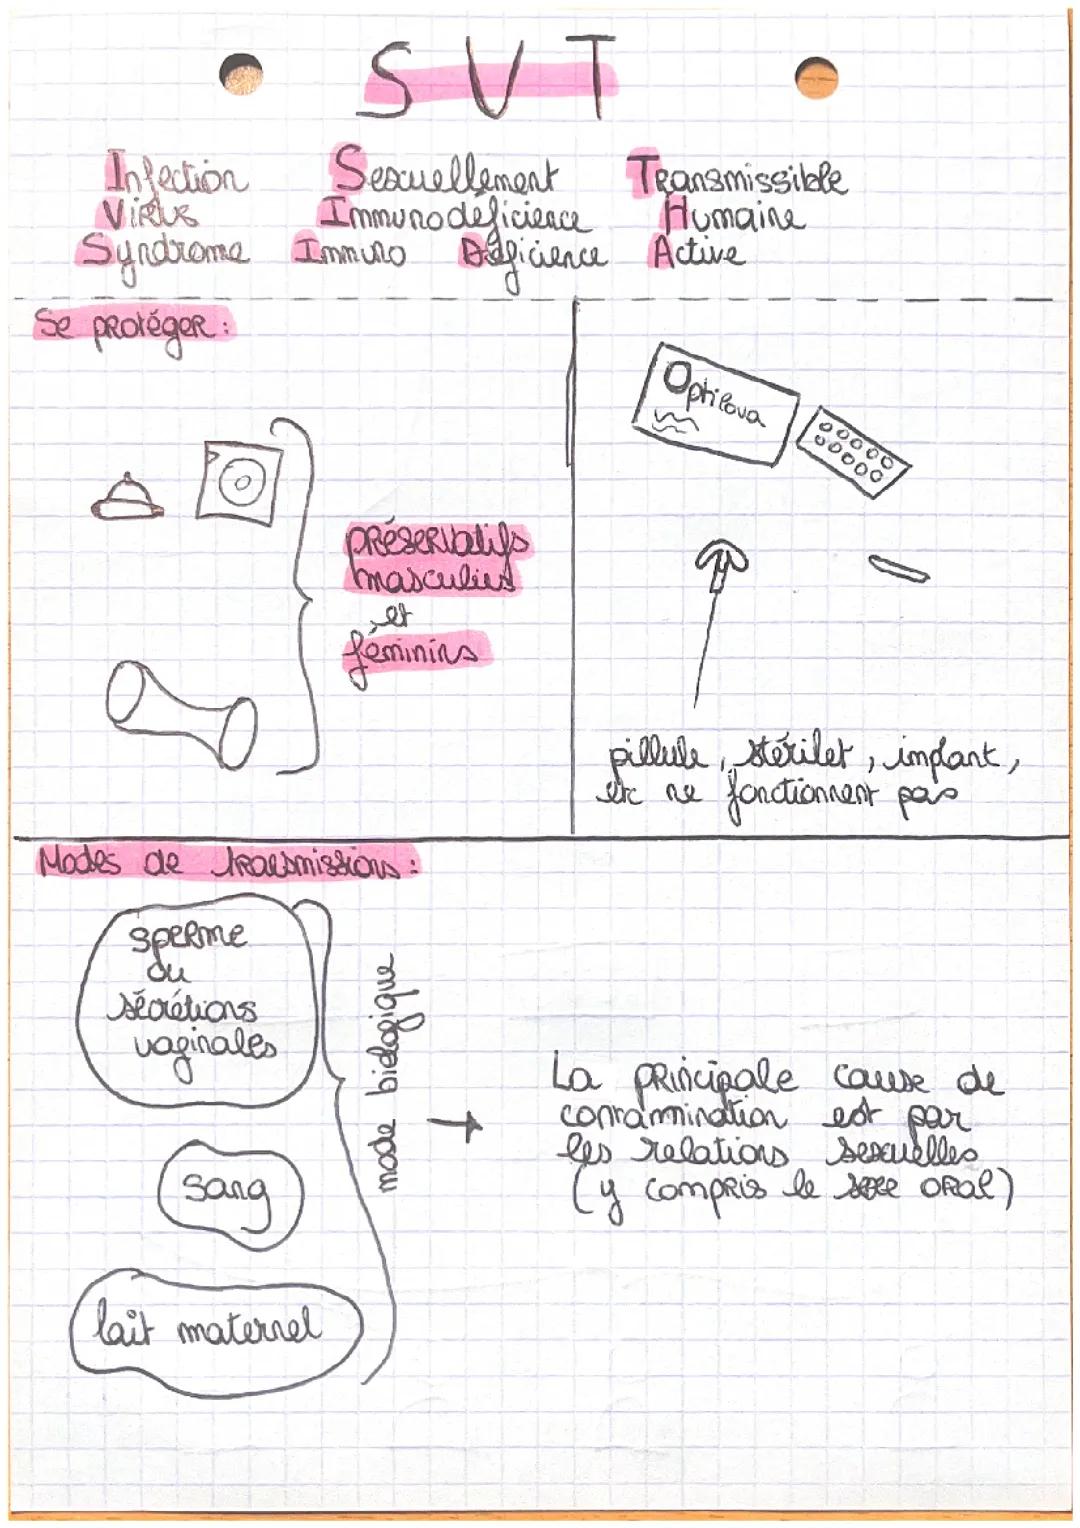 SVT
Infection Sexuellement Transmissible
Virus Immunodéficience Humaine
Syndrome Immuno Déficience Active
Se protéger :
Optilova
préservatifs
masculins
et
féminins
pillule, stérilet, implant,
etc ne fonctionnent pas
Modes de transmissions :
sperme
ou
sécrétions
vaginales
mode biologique
sang
lait maternel
→ La principale cause de
contammination est par
les relations sexuelles
(y compris le sexe oral)